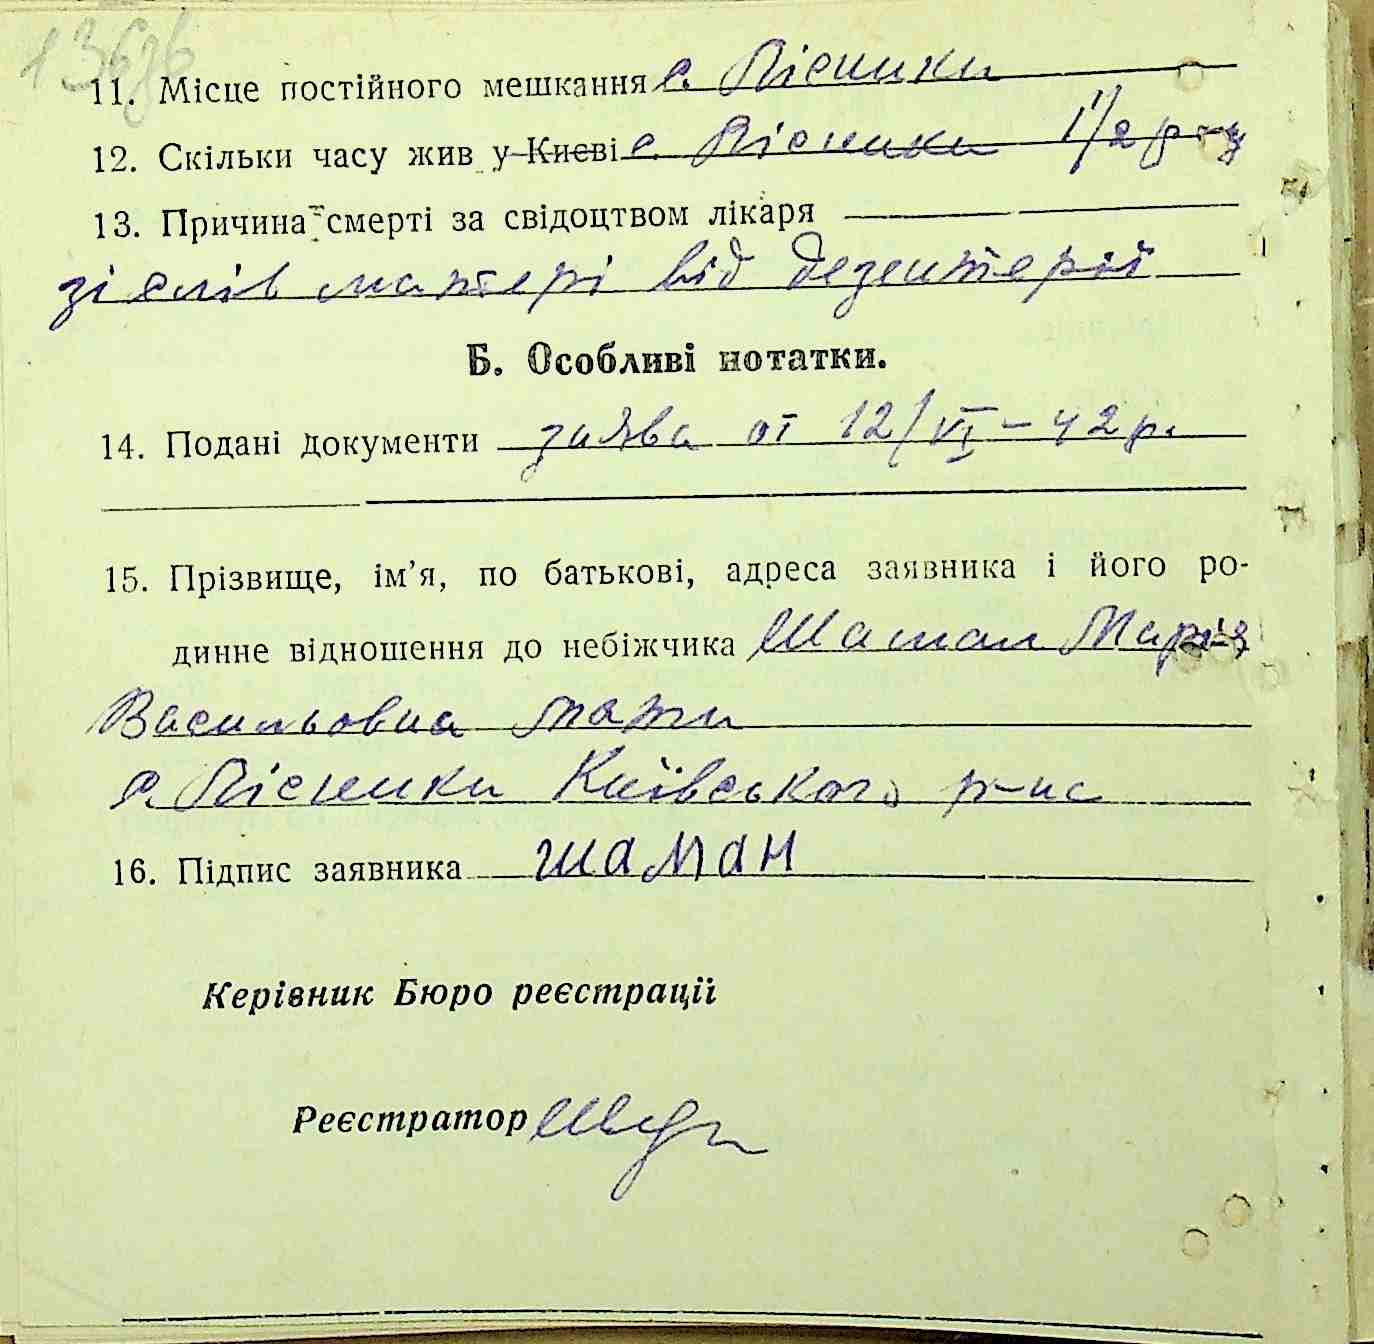 11. Місце постійного мешкання с. Пісники
12. Скільки часу жив у Києві с. Пісники 1 1/2 року
13. Причина смерті за свідоцтвом лікаря
зі слів матері від дезентерії
Б. Особливі нотатки.
14. Подані документи заява от 12/VI – 42 р.
15. Прізвище, ім’я, по батькові, адреса заявника і його ро-
динне відношення до небіжчика Шаман Марія
Васильовна мати
с. Пісники Київського р-ис
16. Підпис заявника шаман
Керівник Бюро реєстрації
Реєстратор